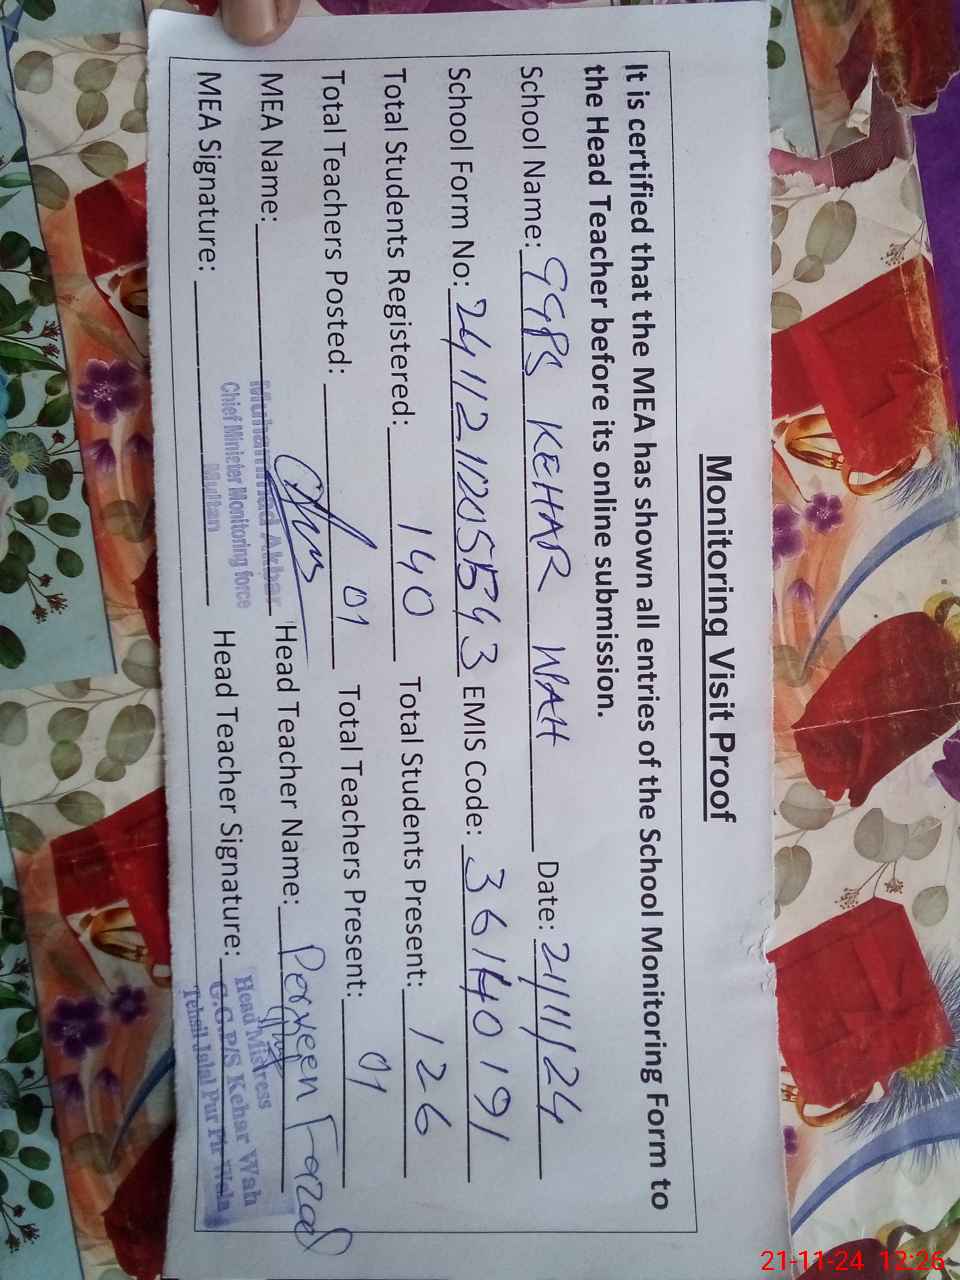 Monitoring Visit Proof
It is certified that the MEA has shown all entries of the School Monitoring Form to
the Head Teacher before its online submission.
School Name: GGPS KEHAR WAH Date: 21/11/24
School Form No: EMIS Code: 36140191
Total Students Registered: 140 Total Students Present: 126
Total Teachers Posted: 01 Total Teachers Present: 01
MEA Name: Muhammad Akbar Head Teacher Name: Perveen Fazal
Chief Minister Monitoring force
Multan
MEA Signature: Head Teacher Signature:
Head Mistress
G.G.P/S Kehar Wah
Tehsil Jalal Pur Pir Wala
21-11-24 12:26